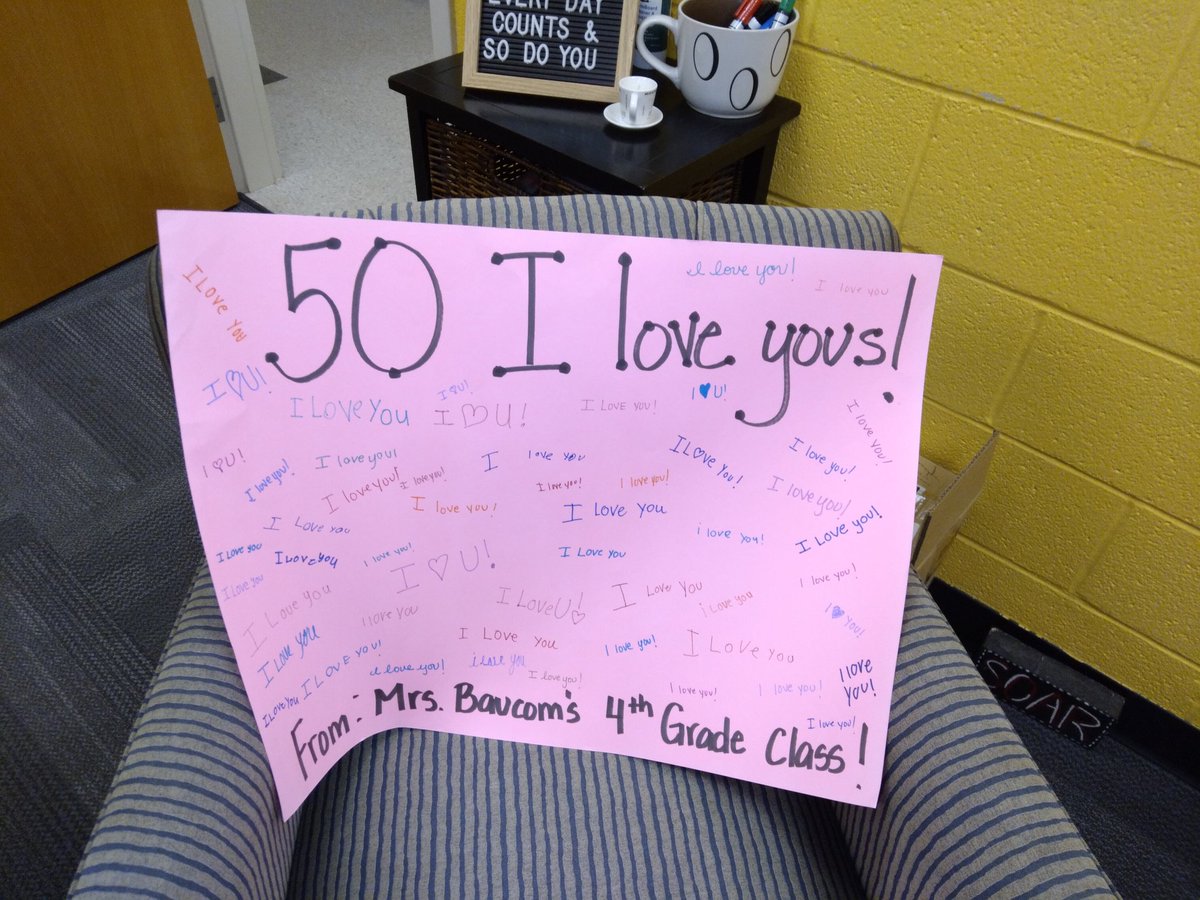 EVERY DAY
COUNTS &
SO DO YOU
50 I love yous!
I love you!
I love you
I Love You
I ♡ U!
I ♡ U!
I Love You
I ♡ U!
I Love You!
I ♥ U!
I love you!
I ♡ U!
I love you!
I love you!
I love you!
I love you!
I love you
I love you!
I love you!
I Love You!
I love you!
I love you!
I love you!
I Love You
I Love You
i love you!
I Love you!
I Love you
I Love you
I love you!
I ♡ U!
I Love You
I Love you
I Love you
I love you
I LoveU!♡
I Love You
i Love you
I love you!
I ♥ you!
I Love you
I Love You!
I love you!
I Love you
i love you
I love you!
I love you!
I Love you
I Love You
I love you!
I love you!
I love you!
I love you!
From: Mrs. Baucom's 4th Grade Class!
SOAR